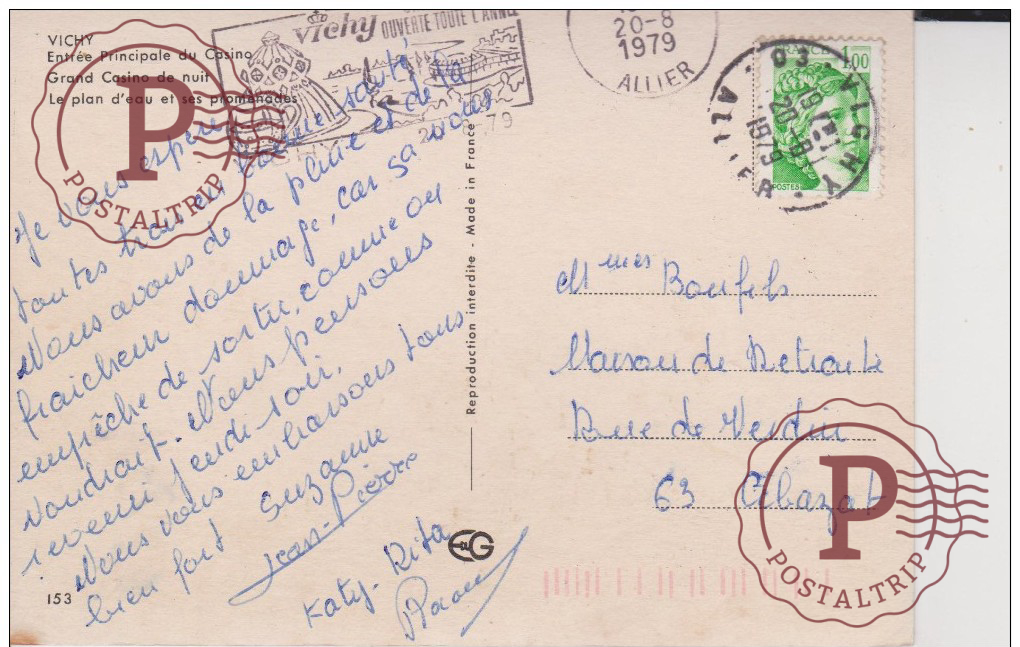 VICHY
Entrée Principale du Casino
Grand Casino de nuit
Le plan d'eau et ses promenades
Vichy
OUVERTE TOUTE L'ANNÉE
20-8
1979
ALLIER
FRANCE 1,00
POSTES
03 VICHY
20-8
1979
ALLIER
Je vous espère
toutes trois en bonne santé
Nous avons de la pluie et de la
fraicheur dommage, car sa nous
empêche de sortir, comme on
voudrait. Nous pensons
revenir jeudi soir.
Nous vous embrassons tous
bien fort
Suzanne
Jean-Pierre
Katy. Rita
Reproduction interdite - Made in France
Mmes Bonfils
Maison de Retraite
Rue de Verdun
63
153
P
POSTALTRIP
P
POSTALTRIP